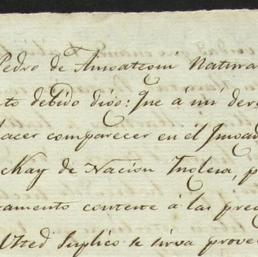 Pedro de Amoategui Natura
to debido dijo: Que á mi dere
hacer comparecer en el Juzgad
cKay de Nacion Inglesa, p
ramento conteste á las preg
Usted Suplico se sirva prove